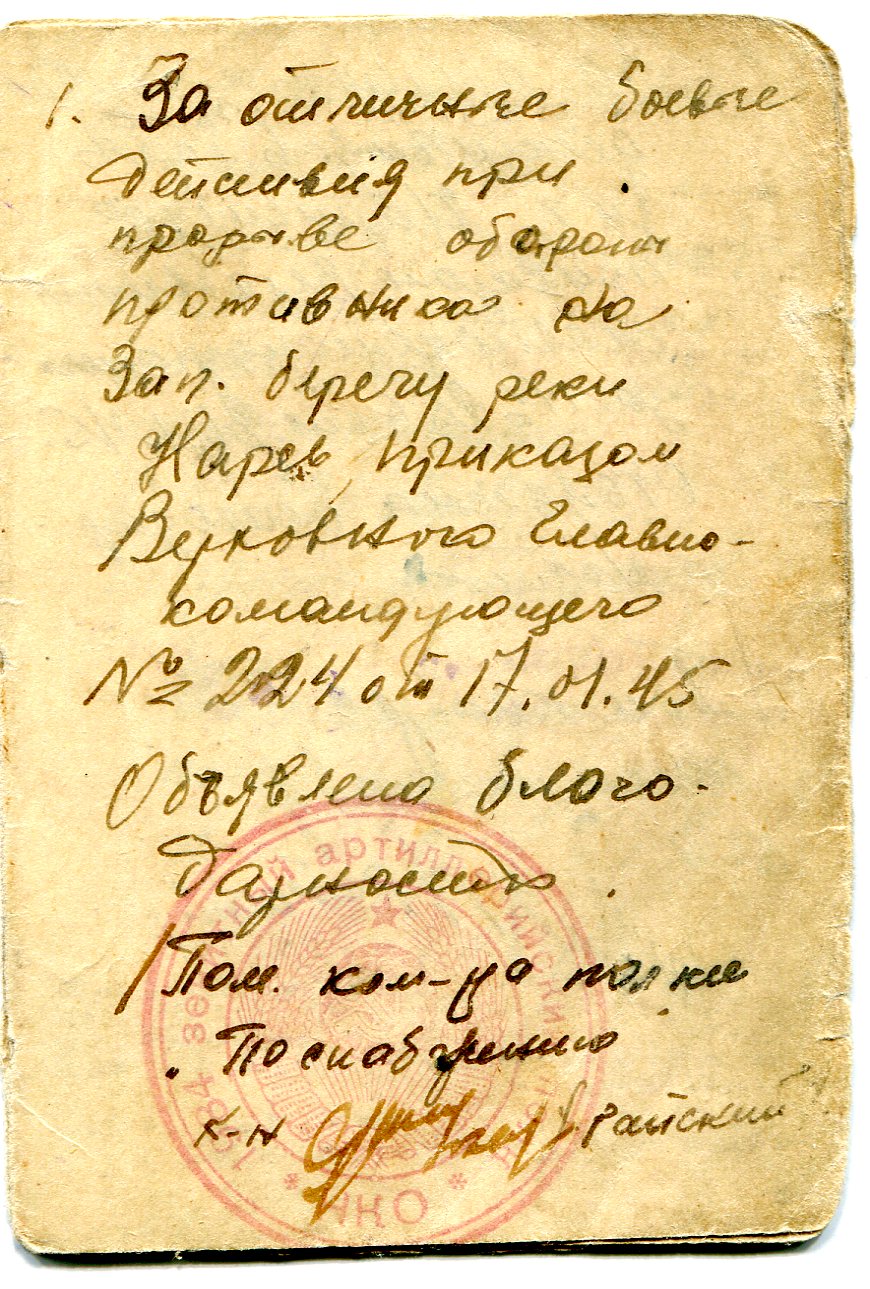 1. За отличные боевые
действия при
прорыве обороны
противника на
Зап. берегу реки
Нарев, приказом
Верховного Главно-
командующего
№ 224 от 17.01.45
Объявлена благо-
дарность.
Пом. ком-ра полка
По снабжению
к-н Райский
1284 зенитный артиллерийский
* НКО *